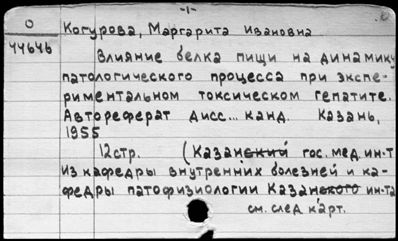 -1-
О Когурова, Маргарита Ивановна
44646 Влияние белка пищи на динамику
патологического процесса при экспе-
риментальном токсическом гепатите.
Автореферат дисс... канд. Казань,
1955
12стр. (Казанский гос. мед. ин-т
Из кафедры внутренних болезней и ка-
федры патофизиологии Казанского ин-та
см. след карт.